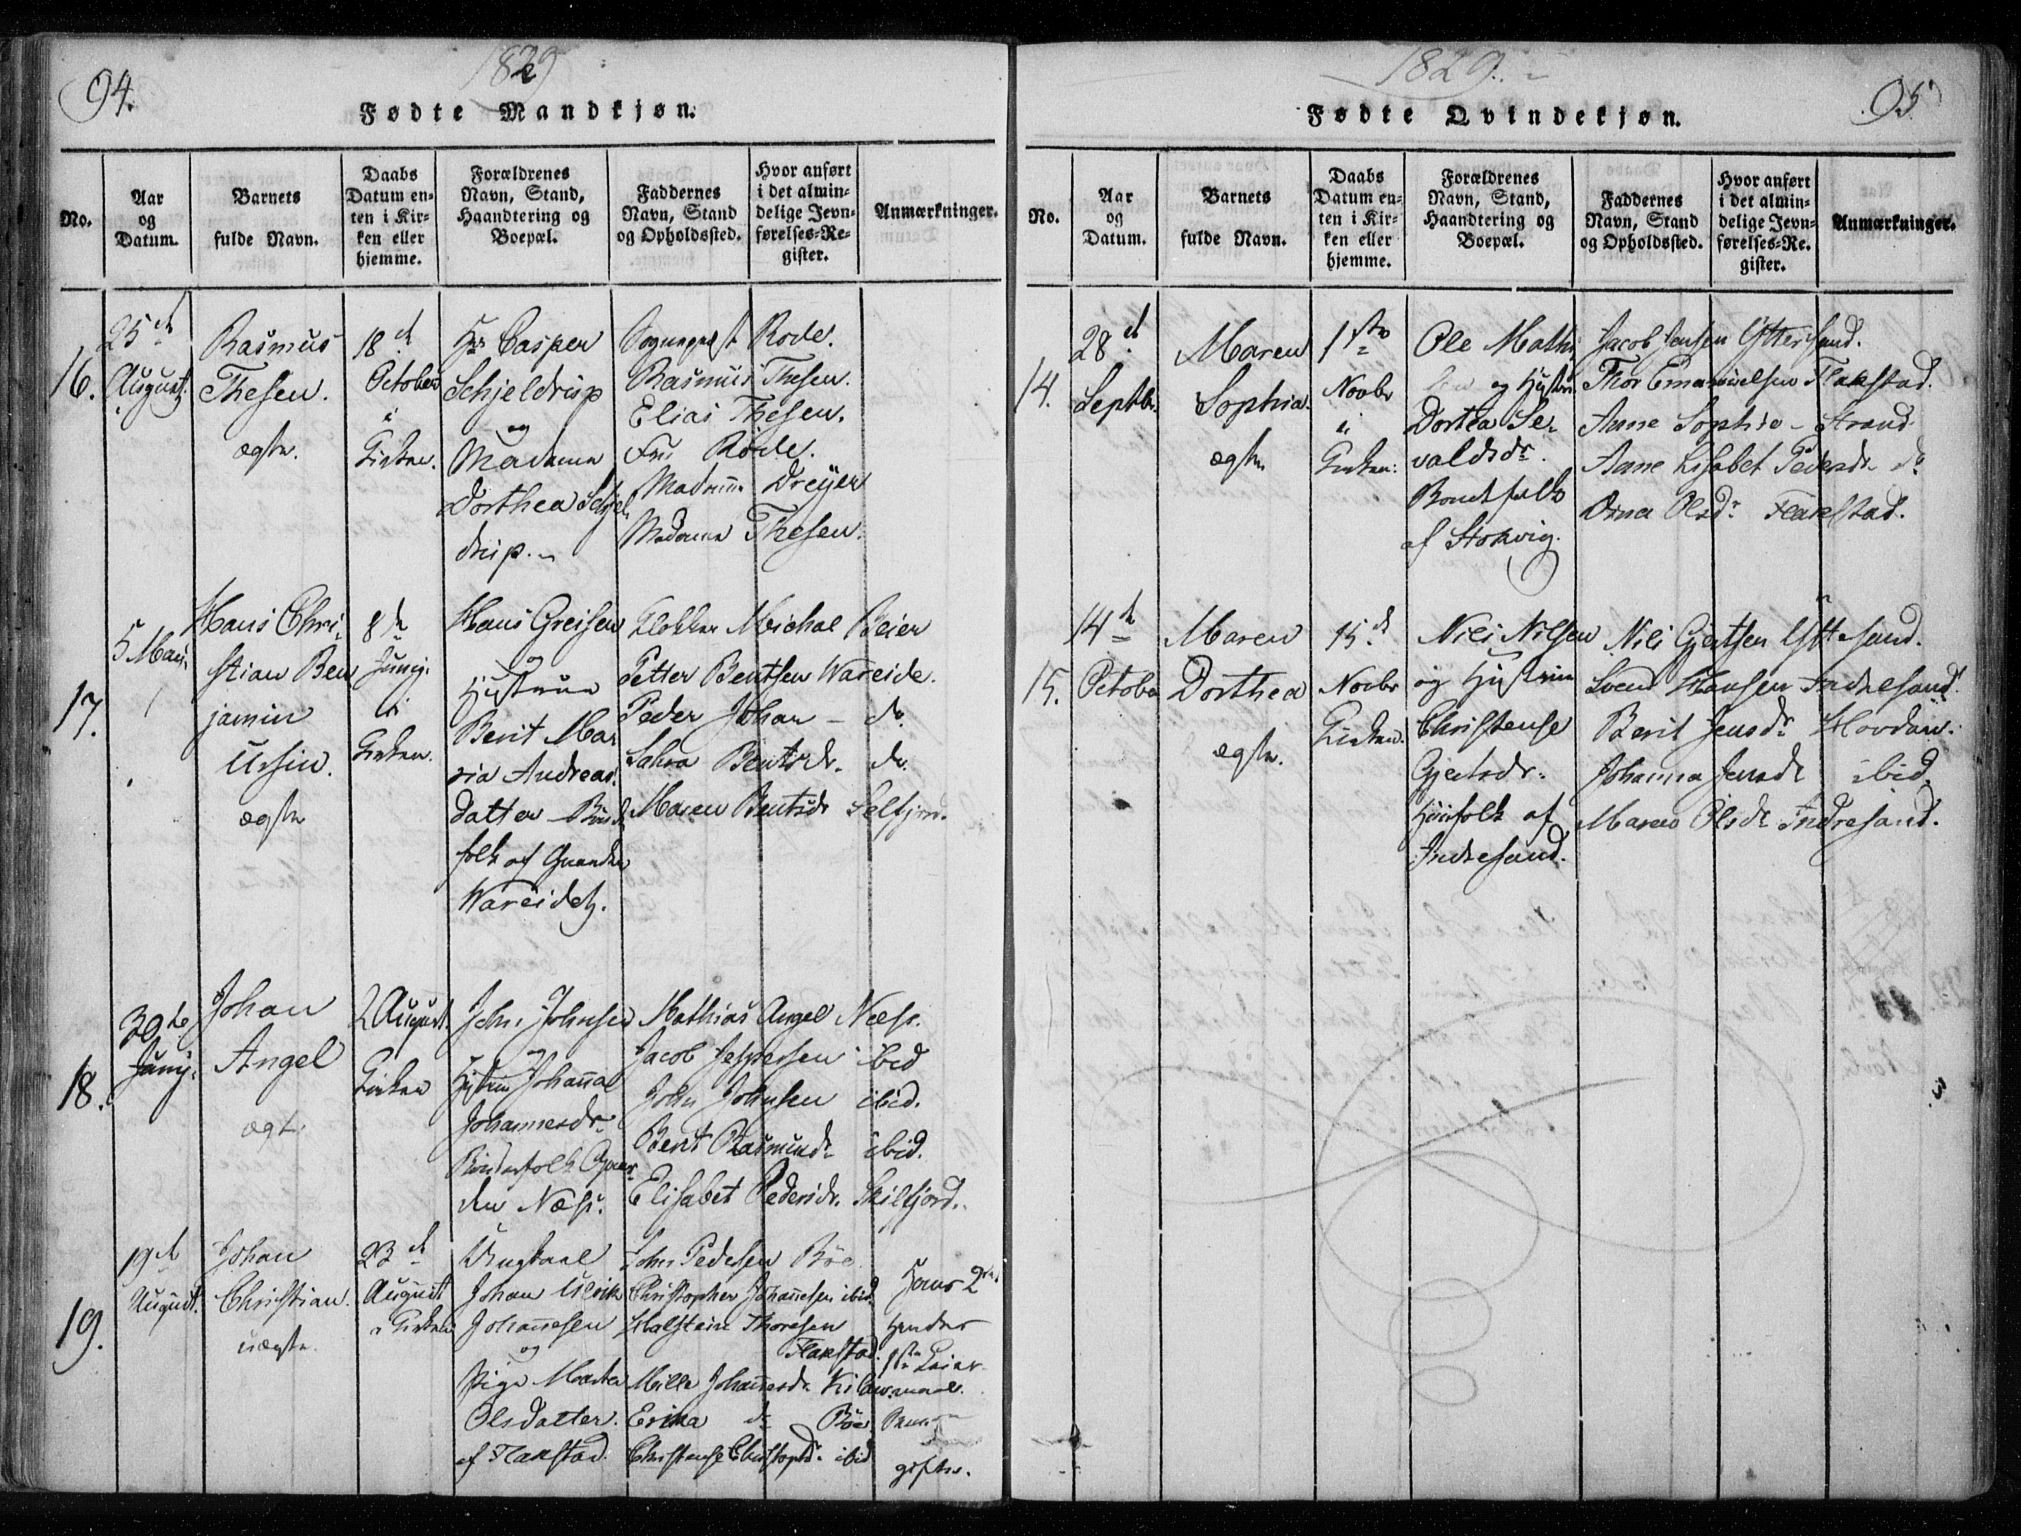 94.
1829
Fødte Mandkjøn.
No.
Aar
og
Datum.
Barnets
fulde Navn.
Daabs
Datum en-
ten i Kir-
ken eller
hjemme.
Forældrenes
Navn, Stand,
Haandtering og
Boepæl.
Faddernes
Navn, Stand
og Opholdssted.
Hvor anført
i det almin-
delige Jevn-
førelses-Re-
gister.
Anmærkninger.
16.
25de
August.
Rasmus
Thesen.
ægte.
18de
October
i
Kirken.
Hr Casper
Schjeldrup
og
Madame
Dorthea Schjel
drup.
Rode.
Rasmus Thesen.
Elias Thesen.
Fru Rode.
Madame Dreyer
Madame Thesen.
17.
5 Maii
Hans Chri-
stian Ben
jamin
Ursin.
ægte
8de
Junij
i
Kirken.
Hans Greisen
og
Hustrue
Berit Mar
ria Andreas
datter
folk af
Wareidet.
Klokker Michal Beier
Petter Bentsen Wareide.
Peder Johan - do.
Sahra Bentsdr. do.
Maren Bentsdr Selfjord.
18.
30te
Junij.
Johan
Angel
ægt.
2 August
Kirken
John Johnsen
og
Hustrue Johanna
Johannesdr.
Bønderfolk
den Næss.
Mathias Angel Næss.
Jacob Jespersen ibid
John Johnsen ibid.
Berit Rasmusdr ibid.
Elisabet Pedersdr. Skilfjord.
19.
19de
August.
Johan
Christian.
uægte.
23de
August
i Kirken
Ungkarl
Johan Ulrik
Johannesen
og
Pige Marta
Olsdatter.
af Flakstad.
John Pedersen Böe
Christopher Johannesen ibid
Halstein Thoresen
Flakstad.
Mille Johannesdr
Erika do Böe
Christense Christophdr. ibid
Hans 2det
Hendes
1ste Leier-
maal.
giftes.
1829.
95.
Fødte Qvindekjøn.
No.
Aar
og
Datum.
Barnets
fulde Navn.
Daabs
Datum en-
ten i Kir-
ken eller
hjemme.
Forældrenes
Navn, Stand,
Haandtering og
Boepæl.
Faddernes
Navn, Stand
og Opholdssted.
Hvor anført
i det almin-
delige Jevn-
førelses-Re-
gister.
Anmærkninger.
14.
28de
Septbr.
Maren
Sophia.
ægte
1ste
Novbr
i
Kirken.
Ole Mathi
sen og Hustru
Dorthea Se-
valdsdr.
Bondefolk
af Storvig.
Jacob Jensen Yttersand.
Thor Emanuelsen Flakstad.
Anne Sophie - Strand
Anne Lisabet Pedersdr do
Olsdr Flakstad.
15.
14de
October
Maren
Dorthea
ægte.
15de
Novbr
Kirken.
Nils Nilsen
og Hustrue
Christense
Gjertsdr.
Huusfolk af
Indresand.
Nils Gjertsen Yttersand.
Svend Hansen Indresand.
Berit Jensdr
Johanna Jensdr ibid
Maren Olsdr Indresand.